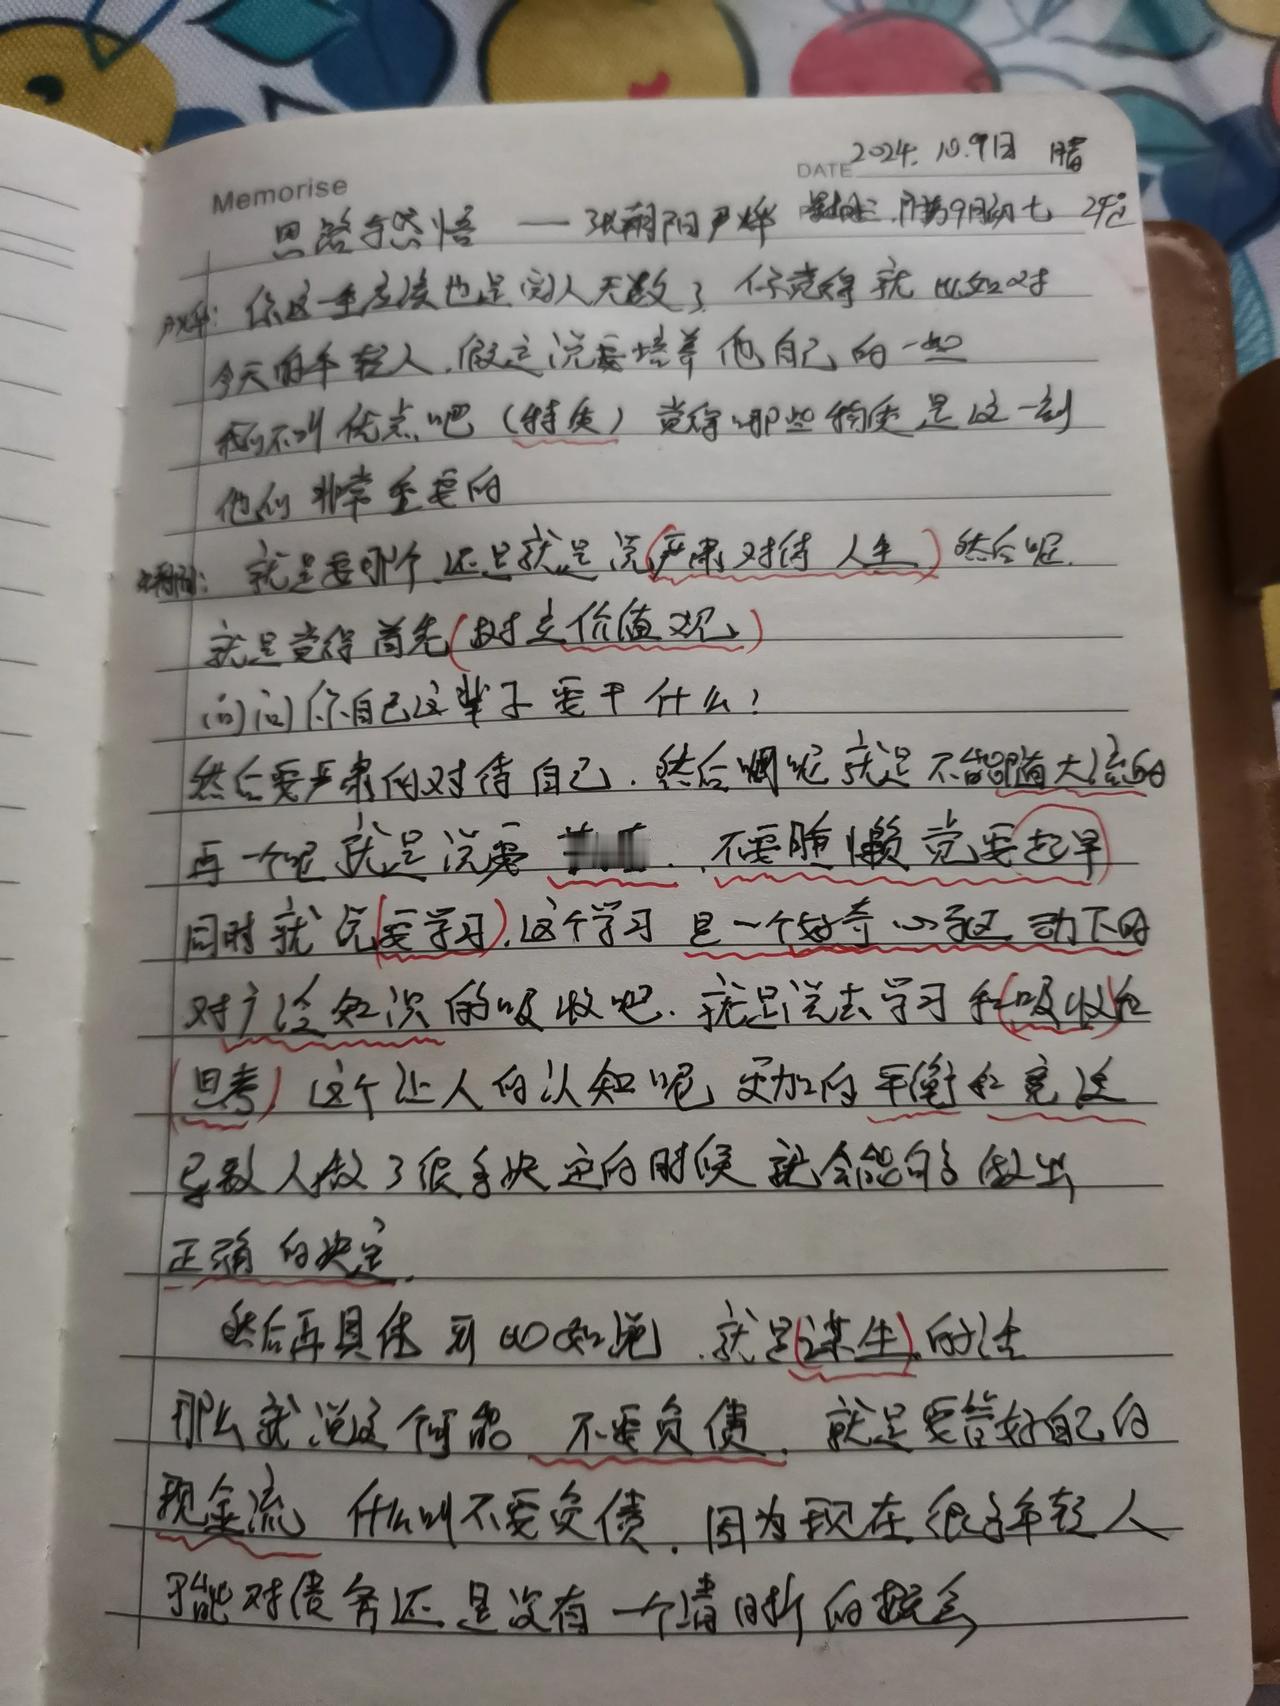 Memorise
DATE 2024. 10.9日 晴
思路豁然悟 —— 张朝阳尹烨 9月初七 24°
尹烨: 你这一生应该也是阅人无数了 你觉得就比如对
今天的年轻人.假定说要培养他自己的一些
我们不叫优点吧(特质) 觉得哪些特质是这一刻
他们非常重要的
就是要那个.还是就是说(严肃对待人生) 然后呢.
就是觉得首先(树立价值观)
问问你自己这辈子要干什么?
然后要严肃的对待自己.然后呢就是不能随大流的
再一个呢就是说要 . 不要睡懒觉要起早
同时就说(要学习).这个学习是一个好奇心驱动下的
对广泛知识的吸收吧.就是说去学习和(吸收)和
(思考) 这个让人的认知呢更加的平衡和宽泛
导致人做了很多决定的时候就会能够做出
正确的决定.
然后再具体到比如说.就是(谋生)的话
那么就说这个可能 不要负债.就是要管好自己的
现金流 什么叫不要负债.因为现在很多年轻人
可能对债务还是没有一个清晰的概念